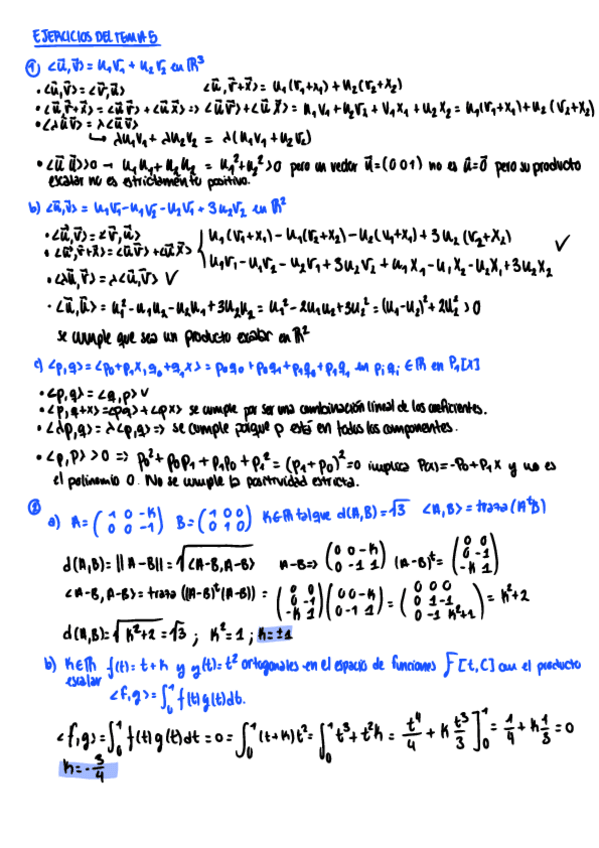 EJERCICIOS DEL TEMA 5
① <u⃗,v⃗> = u₁v₁ + u₂v₂ en ℝ³
• <u⃗,v⃗> = <v⃗,u⃗>   <u⃗,v⃗+x⃗> = u₁(v₁+x₁) + u₂(v₂+x₂)
• <u⃗,v⃗+x⃗> = <u⃗v⃗> + <u⃗x⃗> => <u⃗v⃗> + <u⃗x⃗> = u₁v₁ + u₂v₂ + v₁x₁ + u₂x₂ = u₁(v₁+x₁) + u₂(v₂+x₂)
• <λu⃗v⃗> = λ<u⃗v⃗>
↳ λu₁v₁ + λu₂v₂ = λ(u₁v₁ + u₂v₂)
• <u⃗u⃗> > 0 → u₁u₁ + u₂u₂ = u₁² + u₂² > 0 pero un vector u⃗ = (0 0 1) no es u⃗=0⃗ pero su producto
escalar no es estrictamente positivo.
b) <u⃗,v⃗> = u₁v₁ - u₁v₂ - u₂v₁ + 3u₂v₂ en ℝ²
• <u⃗,v⃗> = <v⃗,u⃗>   u₁(v₁+x₁) - u₁(v₂+x₂) - u₂(v₁+x₁) + 3u₂(v₂+x₂)
• <u⃗,v⃗+x⃗> = <u⃗v⃗> + <u⃗x⃗>   u₁v₁ - u₁v₂ - u₂v₁ + 3u₂v₂ + u₁x₁ - u₁x₂ - u₂x₁ + 3u₂x₂ ✓
• <λu⃗,v⃗> = λ<u⃗,v⃗> ✓
• <u⃗,u⃗> = u₁² - u₁u₂ - u₂u₁ + 3u₂u₂ = u₁² - 2u₁u₂ + 3u₂² = (u₁-u₂)² + 2u₂² > 0
se cumple que sea un producto escalar en ℝ²
c) <p,q> = <p₀+p₁x, q₀+q₁x> = p₀q₀ + p₀q₁ + p₁q₀ + p₁q₁ en pᵢqᵢ ∈ ℝ en P₁[x]
• <p,q> = <q,p> ✓
• <p,q+x> = <pq> + <px> se cumple por ser una combinación lineal de los coeficientes.
• <λp,q> = λ<p,q> => se cumple porque p está en todos los componentes.
• <p,p> > 0 => p₀² + p₀p₁ + p₁p₀ + p₁² = (p₁+p₀)² = 0 implica P(x) = -p₀+p₁x y no es
el polinomio 0. No se cumple la positividad estricta.
② a) A = (1 0 -k / 0 0 -1)   B = (1 0 0 / 0 1 0)   k∈ℝ tal que d(A,B) = √3   <A,B> = traza(AᵗB)
d(A,B) = ||A-B|| = √<A-B,A-B>   A-B => (0 0 -k / 0 -1 1)   (A-B)ᵗ = (0 0 / 0 -1 / -k 1)
<A-B,A-B> = traza((A-B)ᵗ(A-B)) = (0 0 / 0 -1 / -k 1)(0 0 -k / 0 -1 1) = (0 0 0 / 0 1 -1 / 0 -1 k²+1) = k²+2
d(A,B) = √k²+2 = √3 ; k²=1 ; k=±1
b) k∈ℝ f(t) = t+k y g(t) = t² ortogonales en el espacio de funciones F[t,C] con el producto
escalar
<f,g> = ∫₀¹ f(t)g(t)dt.
<f,g> = ∫₀¹ f(t)g(t)dt = 0 = ∫₀¹ (t+k)t² = ∫₀¹ t³ + t²k = t⁴/4 + k t³/3 ]₀¹ = 1/4 + k 1/3 = 0
k = -3/4